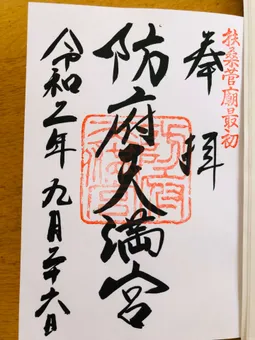 扶桑菅廟最初
奉拝
防府天満宮
令和二年九月二十六日